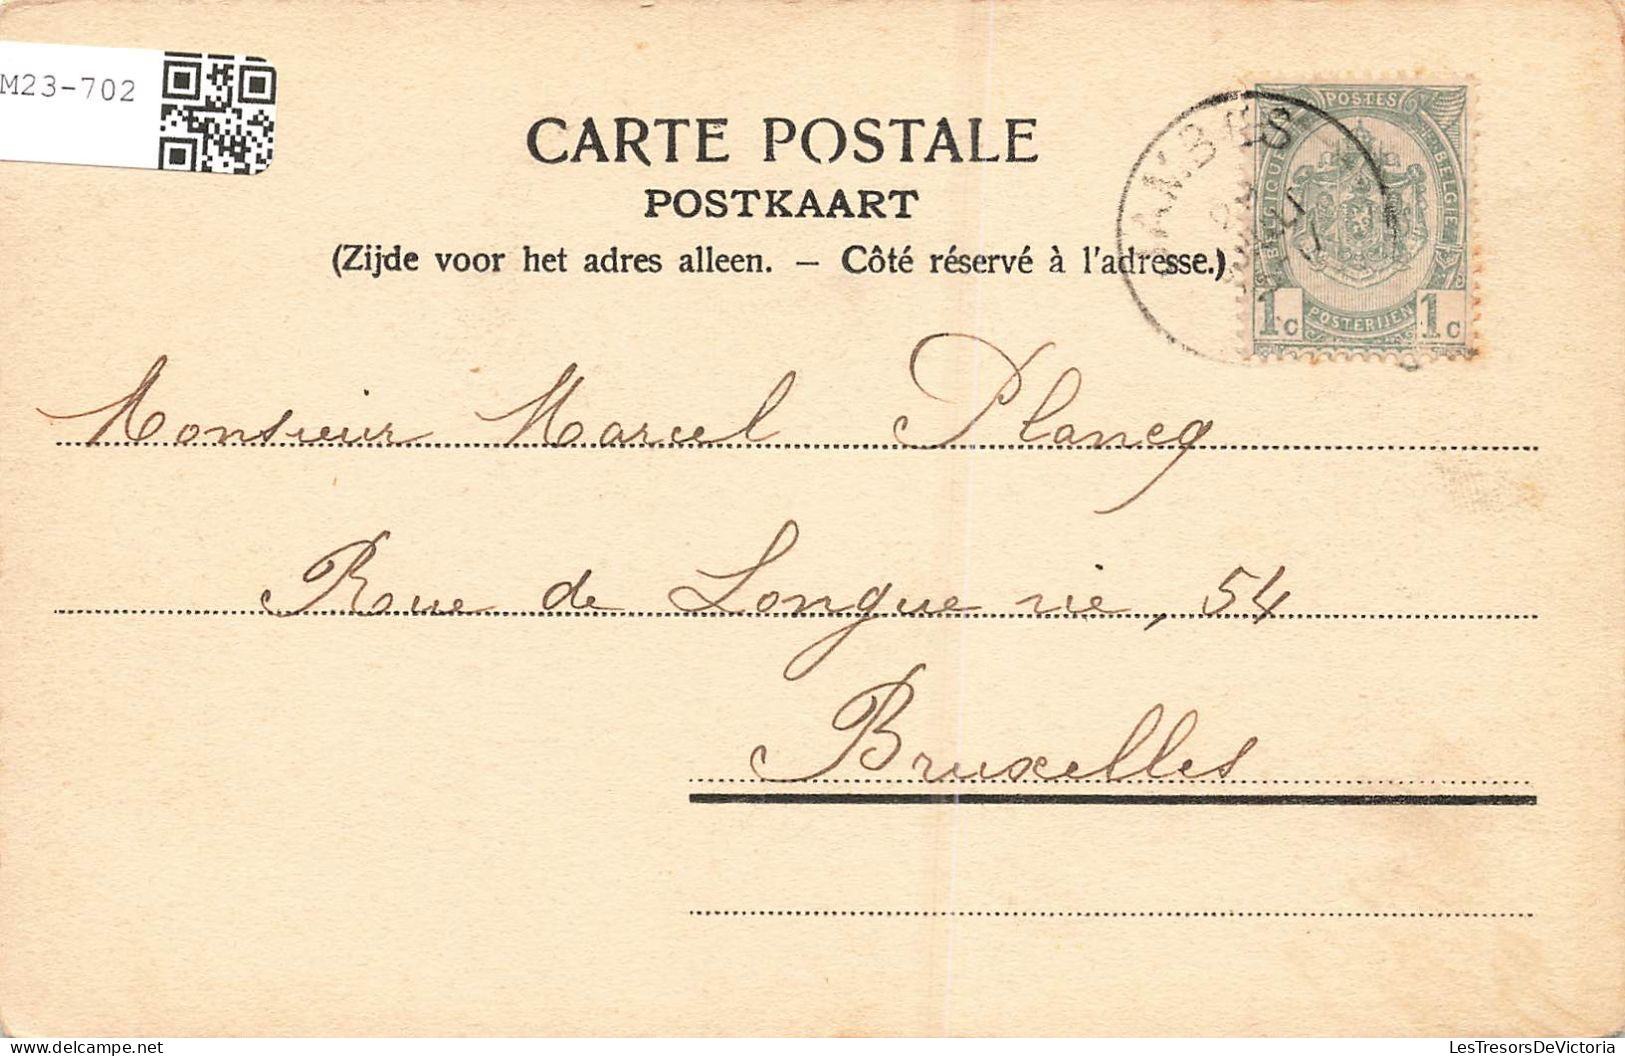 M23-702
CARTE POSTALE
POSTKAART
(Zijde voor het adres alleen. — Côté réservé à l'adresse.)
POSTES
BELGIQUE
BELGIE
POSTERIJEN
1c 1c
Monsieur Marcel Plancq
Rue de Longue vie, 54
Bruxelles
LesTresorsDeVictoria